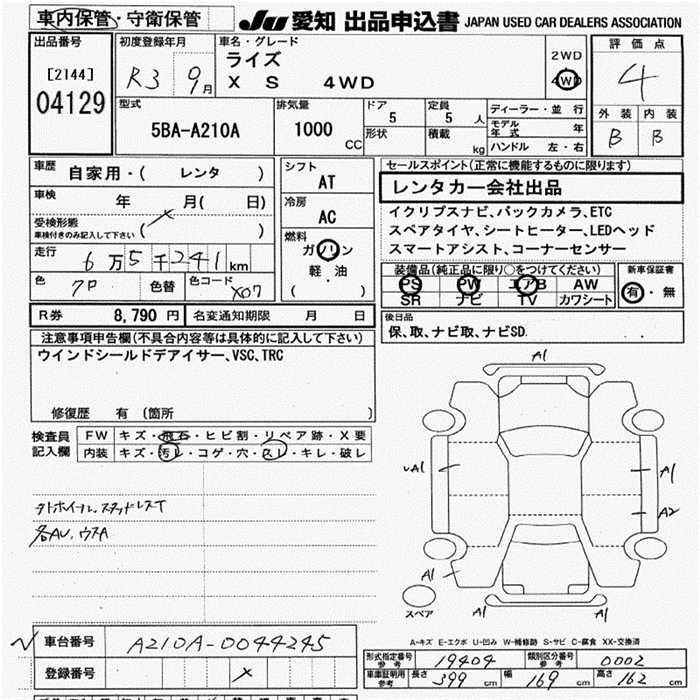 車内保管・守衛保管
JU 愛知 出品申込書 JAPAN USED CAR DEALERS ASSOCIATION
出品番号
[2144]
04129
初度登録年月
R3 9月
車名・グレード
ライズ
X S 4WD
2WD
4WD
評価点
4
外装 内装
B B
型式
5BA-A210A
排気量
1000 CC
ドア
5
形状
定員
5人
積載 kg
ディーラー・並行
モデル年式 年
ハンドル 左・右
車歴
自家用・( レンタ )
車検
年 月( 日)
受検形態
車検付きのみ記入して下さい ( )
走行
6万5千241km
色 色替 色コード
クロ X07
シフト
AT
冷房
AC
燃料
ガソリン
軽・油
( )
セールスポイント(正常に機能するものに限ります)
レンタカー会社出品
イクリプスナビ、バックカメラ、ETC
スペアタイヤ、シートヒーター、LEDヘッド
スマートアシスト、コーナーセンサー
装備品(純正品に限り○をつけてください)
PS PW エアB AW
SR ナビ TV カワシート
新車保証書
有・無
R券 8,790円 名変通知期限 月 日
後日品
保、取、ナビ取、ナビSD.
注意事項申告欄(不具合内容等は具体的に記入して下さい)
ウインドシールドデアイサー、VSC、TRC
修復歴 有 (箇所 )
検査員
記入欄
FW キズ・飛石・ヒビ割・リペア跡・X要
内装 キズ・汚レ・コゲ・穴・スレ・キレ・破レ
外ホイール、スタッドレスT
各AU、ウスA
A1
A1
A1
A2
A1
A1
A1
スペア
A-キズ E-エクボ U-凹み W-補修跡 S-サビ C-腐食 XX-交換済
車台番号 A210A-0044245
登録番号
形式指定番号
参考
19404
類別区分番号
参考
0002
車庫証明用
参考
長さ 399 cm 幅 169 cm 高さ 162 cm